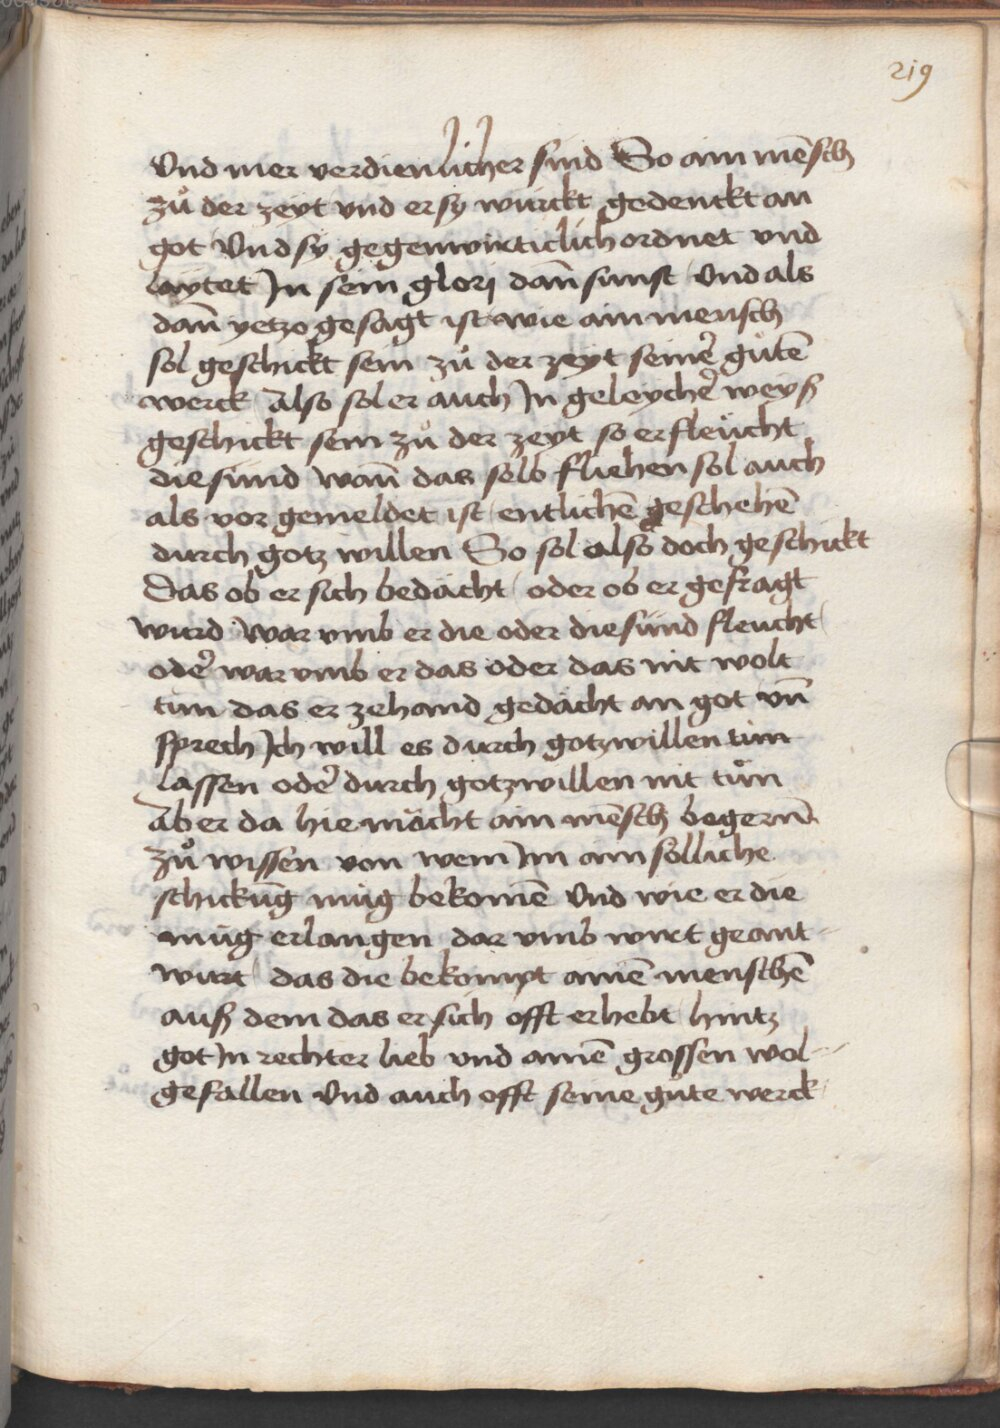 219
Vnd mer verdienlicher sind So ain mēsch
zů der zeyt vnd er sy würckt gedenckt an
got Vnd sy gegenwirticlich ordnet vnd
laytet Jn sein glorj dañ sunst Vnd als
dañ yetzo gesagt ist wie ain mensch
sol geschickt sein zů der zeyt seiner̄ gůtē
werck Also sol er auch Jn geleycher̄ weyß
geschickt sein zů der zeyt so er fleücht
die sünd Wañ das selb fliehen sol auch
als vor gemeldet ist entlichē geschehē
durch gotz willen So sol also doch geschickt
Das ob er sich bedächt / oder ob er gefragt
wurd War vmb er die oder die sünd fleücht /
oder̄ war vmb er das oder das nit wolt
tůn das er zehand gedächt an got vñ
sprech Jch will es durch gotzwillen tůn
lassen oder̄ durch gotzwillen nit tůn
Aber da hie möcht ain mēsch begerñ
zů wissen von wem Jm ain solliche
schickūg müg bekomē Vnd wie er die
müg erlangen dar vmb wirt geant-
wurt / das die bekompt ainē menschē
auß dem das er sich offt erhebt hintz
got Jn rechter lieb vnd ainē grossen wol-
gefallen Vnd auch offt seine gůte werck